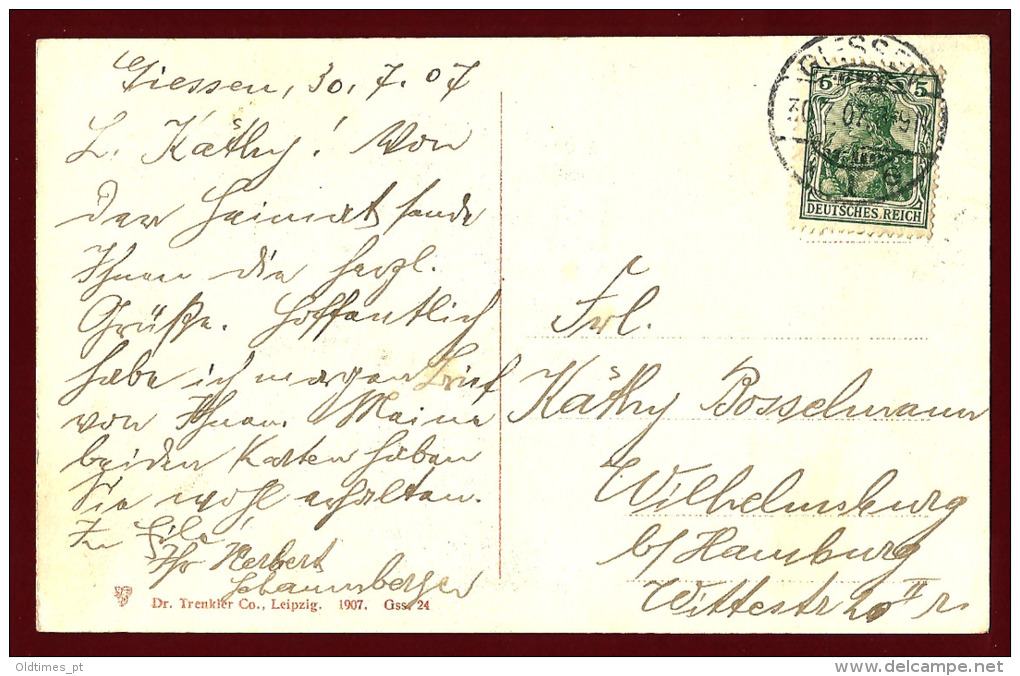 Giessen, 30.7.07
L. Käthy! Von
der Heimat sende
Ihnen die herzl.
Grüße. Hoffentlich
habe ich morgen Brief
von Ihnen. Meine
beiden Karten haben
Sie wohl erhalten.
In Eile
Ihr Herbert
Schaumberger
Dr. Trenkler Co., Leipzig. 1907. Gss. 24
GIESSEN
30.7.07
5 5
DEUTSCHES REICH
Frl.
Käthy Bosselmann
Wilhelmsburg
b/Hamburg
Wittestr 20 II r.
Oldtimes_pt
www.delcampe.net